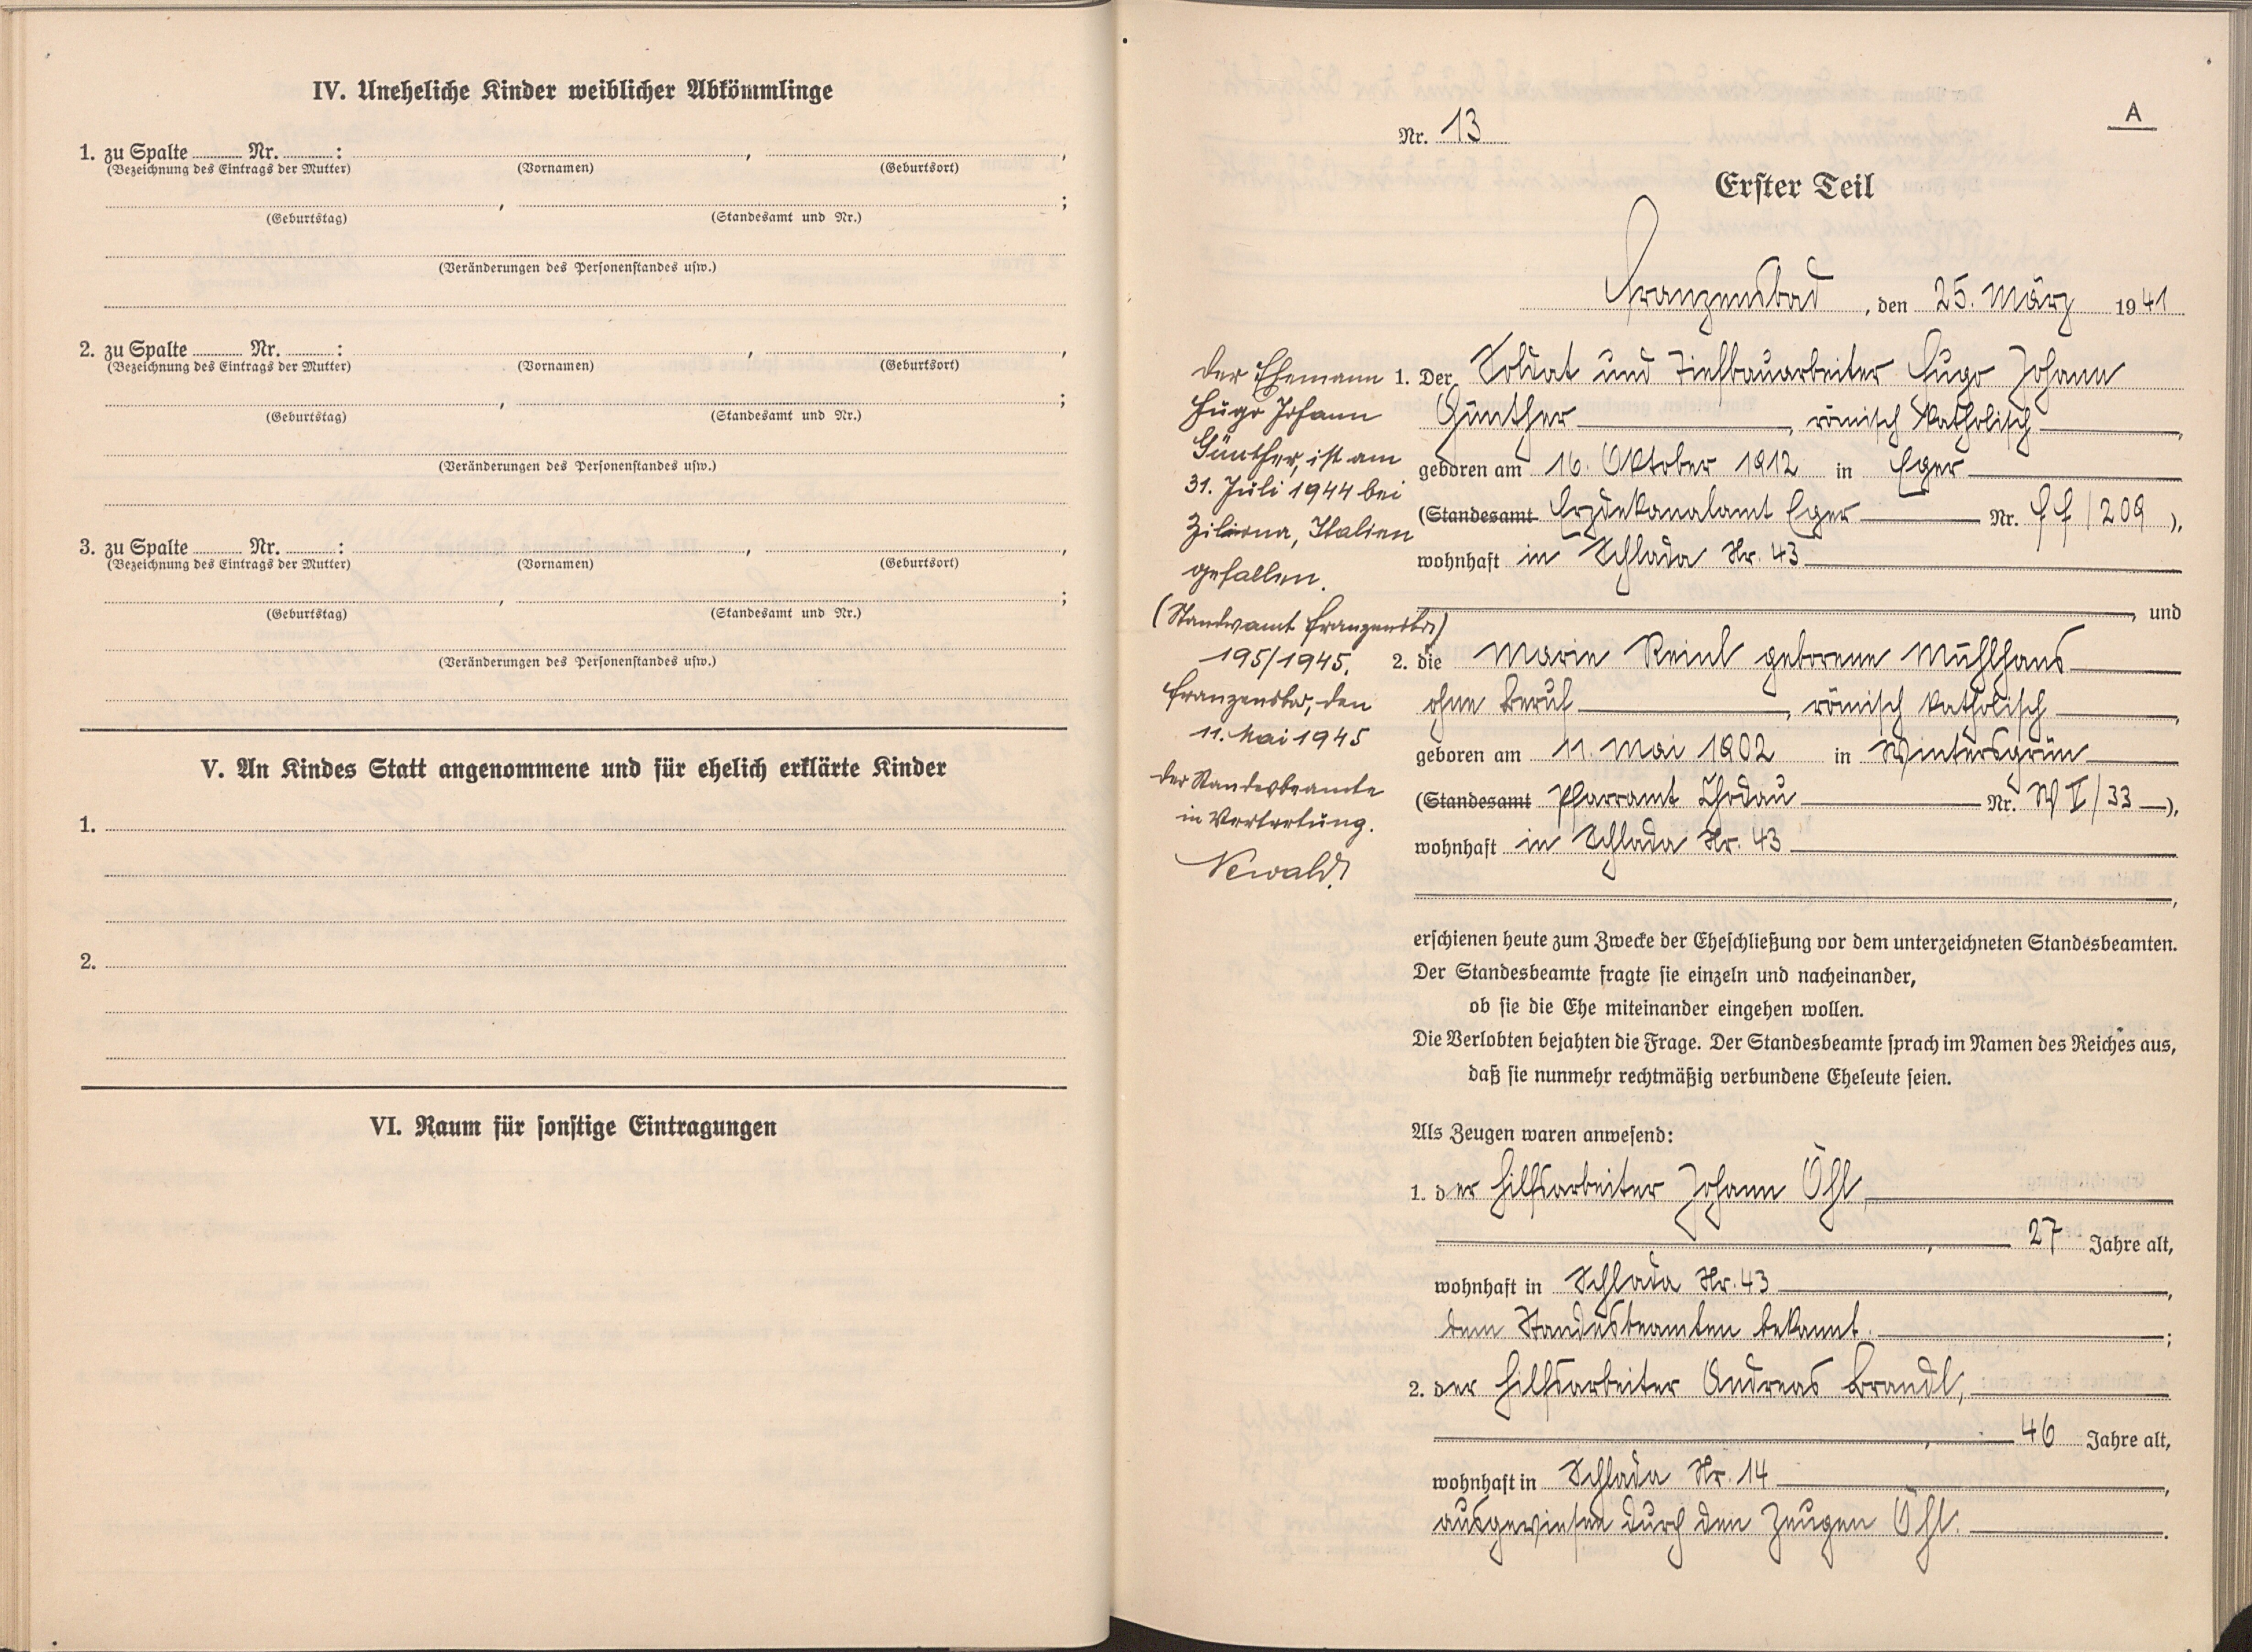 IV. Uneheliche Kinder weiblicher Abkömmlinge
1. zu Spalte ........ Nr. ........ :
(Bezeichnung des Eintrags der Mutter) (Vornamen) (Geburtsort)
(Geburtstag) (Standesamt und Nr.)
(Veränderungen des Personenstandes usw.)
2. zu Spalte ........ Nr. ........ :
(Bezeichnung des Eintrags der Mutter) (Vornamen) (Geburtsort)
(Geburtstag) (Standesamt und Nr.)
(Veränderungen des Personenstandes usw.)
3. zu Spalte ........ Nr. ........ :
(Bezeichnung des Eintrags der Mutter) (Vornamen) (Geburtsort)
(Geburtstag) (Standesamt und Nr.)
(Veränderungen des Personenstandes usw.)
V. An Kindes Statt angenommene und für ehelich erklärte Kinder
1.
2.
VI. Raum für sonstige Eintragungen
A
Nr. 13
Erster Teil
Franzensbad, den 25. März 1941
1. Der Soldat und Tiefbauarbeiter Hugo Johann
Günther, römisch katholisch,
geboren am 16. Oktober 1912 in Eger
(Standesamt Erzdekanalamt Eger Nr. ff/209),
wohnhaft in Schlada Nr. 43
, und
2. die Marie Reinl geborene Mühlhans
ohne Beruf, römisch katholisch,
geboren am 11. Mai 1902 in Wintersgrün
(Standesamt Pfarramt Chodau Nr. W V/33),
wohnhaft in Schlada Nr. 43
,
Der Ehemann
Hugo Johann
Günther, ist am
31. Juli 1944 bei
Italien
gefallen.
(Standesamt Franzensbad)
195/1945.
Franzensbad, den
11. Mai 1945
Der Standesbeamte
in Vertretung.
Newald
erschienen heute zum Zwecke der Eheschließung vor dem unterzeichneten Standesbeamten.
Der Standesbeamte fragte sie einzeln und nacheinander,
ob sie die Ehe miteinander eingehen wollen.
Die Verlobten bejahten die Frage. Der Standesbeamte sprach im Namen des Reiches aus,
daß sie nunmehr rechtmäßig verbundene Eheleute seien.
Als Zeugen waren anwesend:
1. der Hilfsarbeiter Johann Öhl,
, 27 Jahre alt,
wohnhaft in Schlada Nr. 43,
dem Standesbeamten bekannt.;
2. der Hilfsarbeiter Andreas Brandl,
, 46 Jahre alt,
wohnhaft in Schlada Nr. 14,
ausgewiesen durch den Zeugen Öhl.